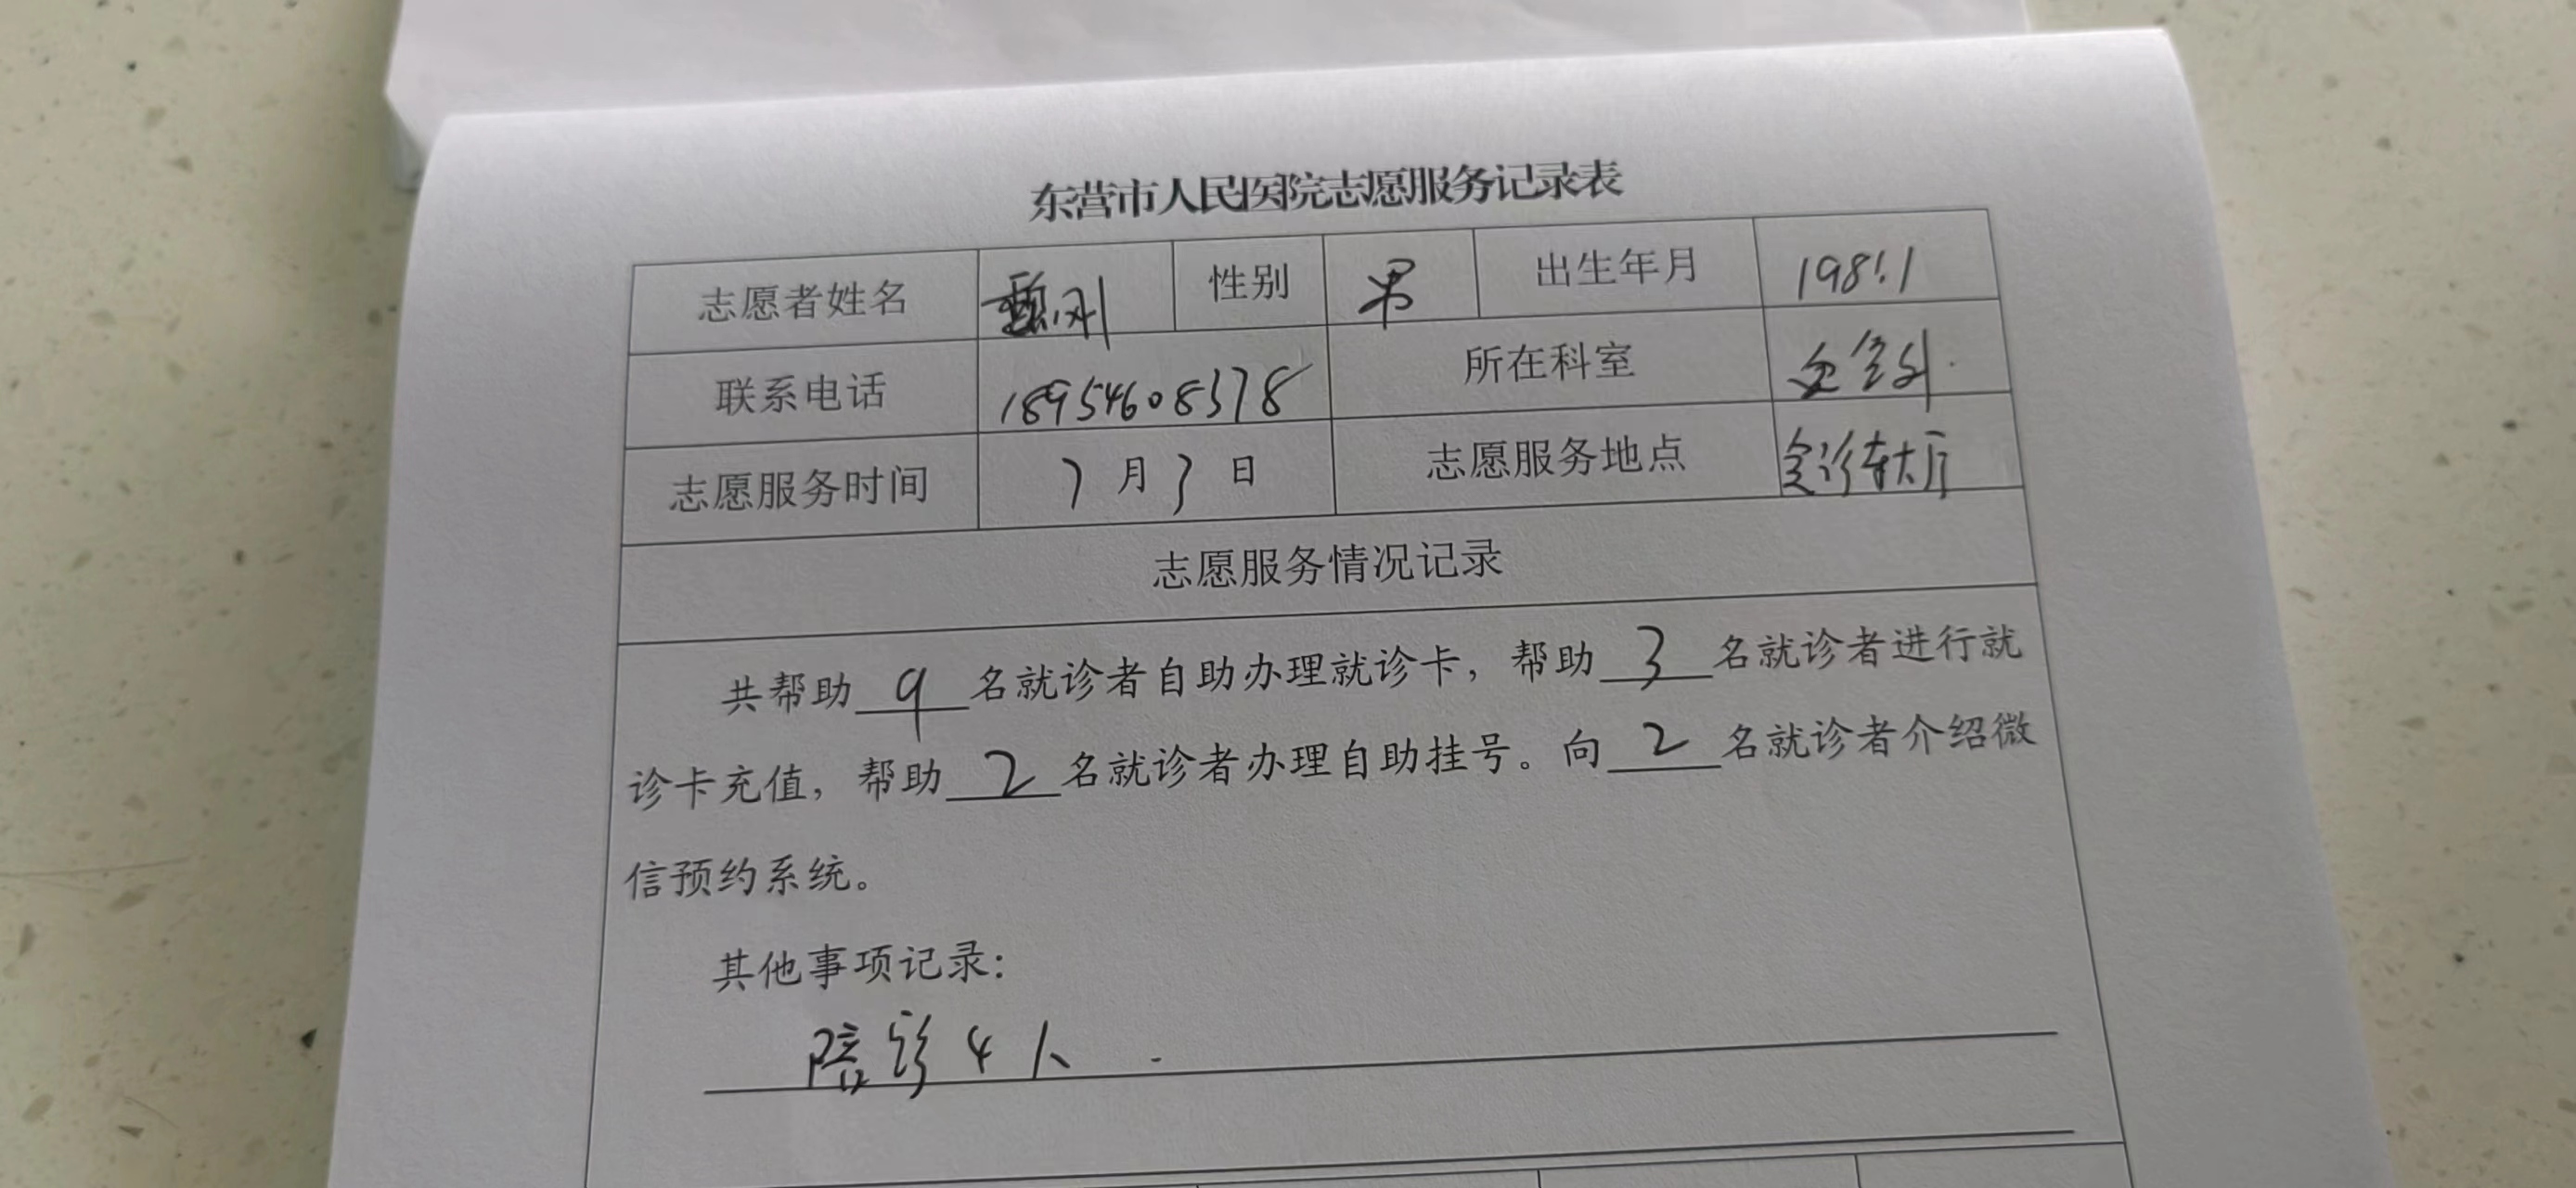 东营市人民医院志愿服务记录表
志愿者姓名 性别 男 出生年月 1981.1
联系电话 18954608378 所在科室
志愿服务时间 7月3日 志愿服务地点 大厅
志愿服务情况记录
共帮助 9 名就诊者自助办理就诊卡，帮助 3 名就诊者进行就
诊卡充值，帮助 2 名就诊者办理自助挂号。向 2 名就诊者介绍微
信预约系统。
其他事项记录：
陪诊4人